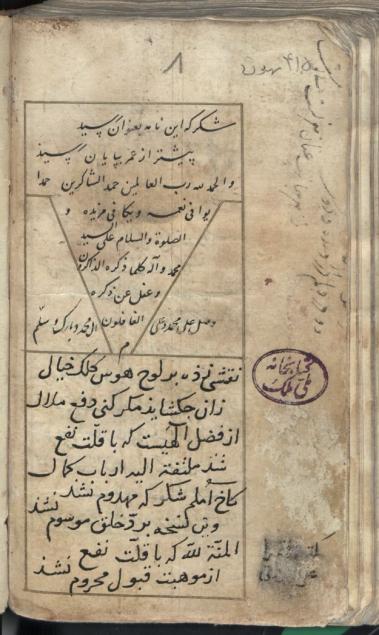 شکر که این نامه بعنوان رسید
پیشتر از عمر بپایان رسید
والحمد لله رب العالمین حمد الشاکرین حمدا
یوافی نعمه ویکافی مزیده و
الصلوة والسلام علی السید
محمد وآله کلما ذکره الذاکرون
وغفل عن ذکره
الغافلون
وصل علی محمد وعلی
ال محمد وبارک وسلم
م
نقشی زده بر لوح هوس کلک خیال
زان جکشاید مکر کنی دفع ملال
از فضل الهیست که با قلّت نفع
شد ملتفت الیه ارباب کمال
کاخ املم شکر که مهدوم نشد
وین نسخه برد خلق موسوم نشد
المنّة لله که با قلّت نفع
از موهبت قبول محروم نشد
کتابخانه
ملی ملک
۸